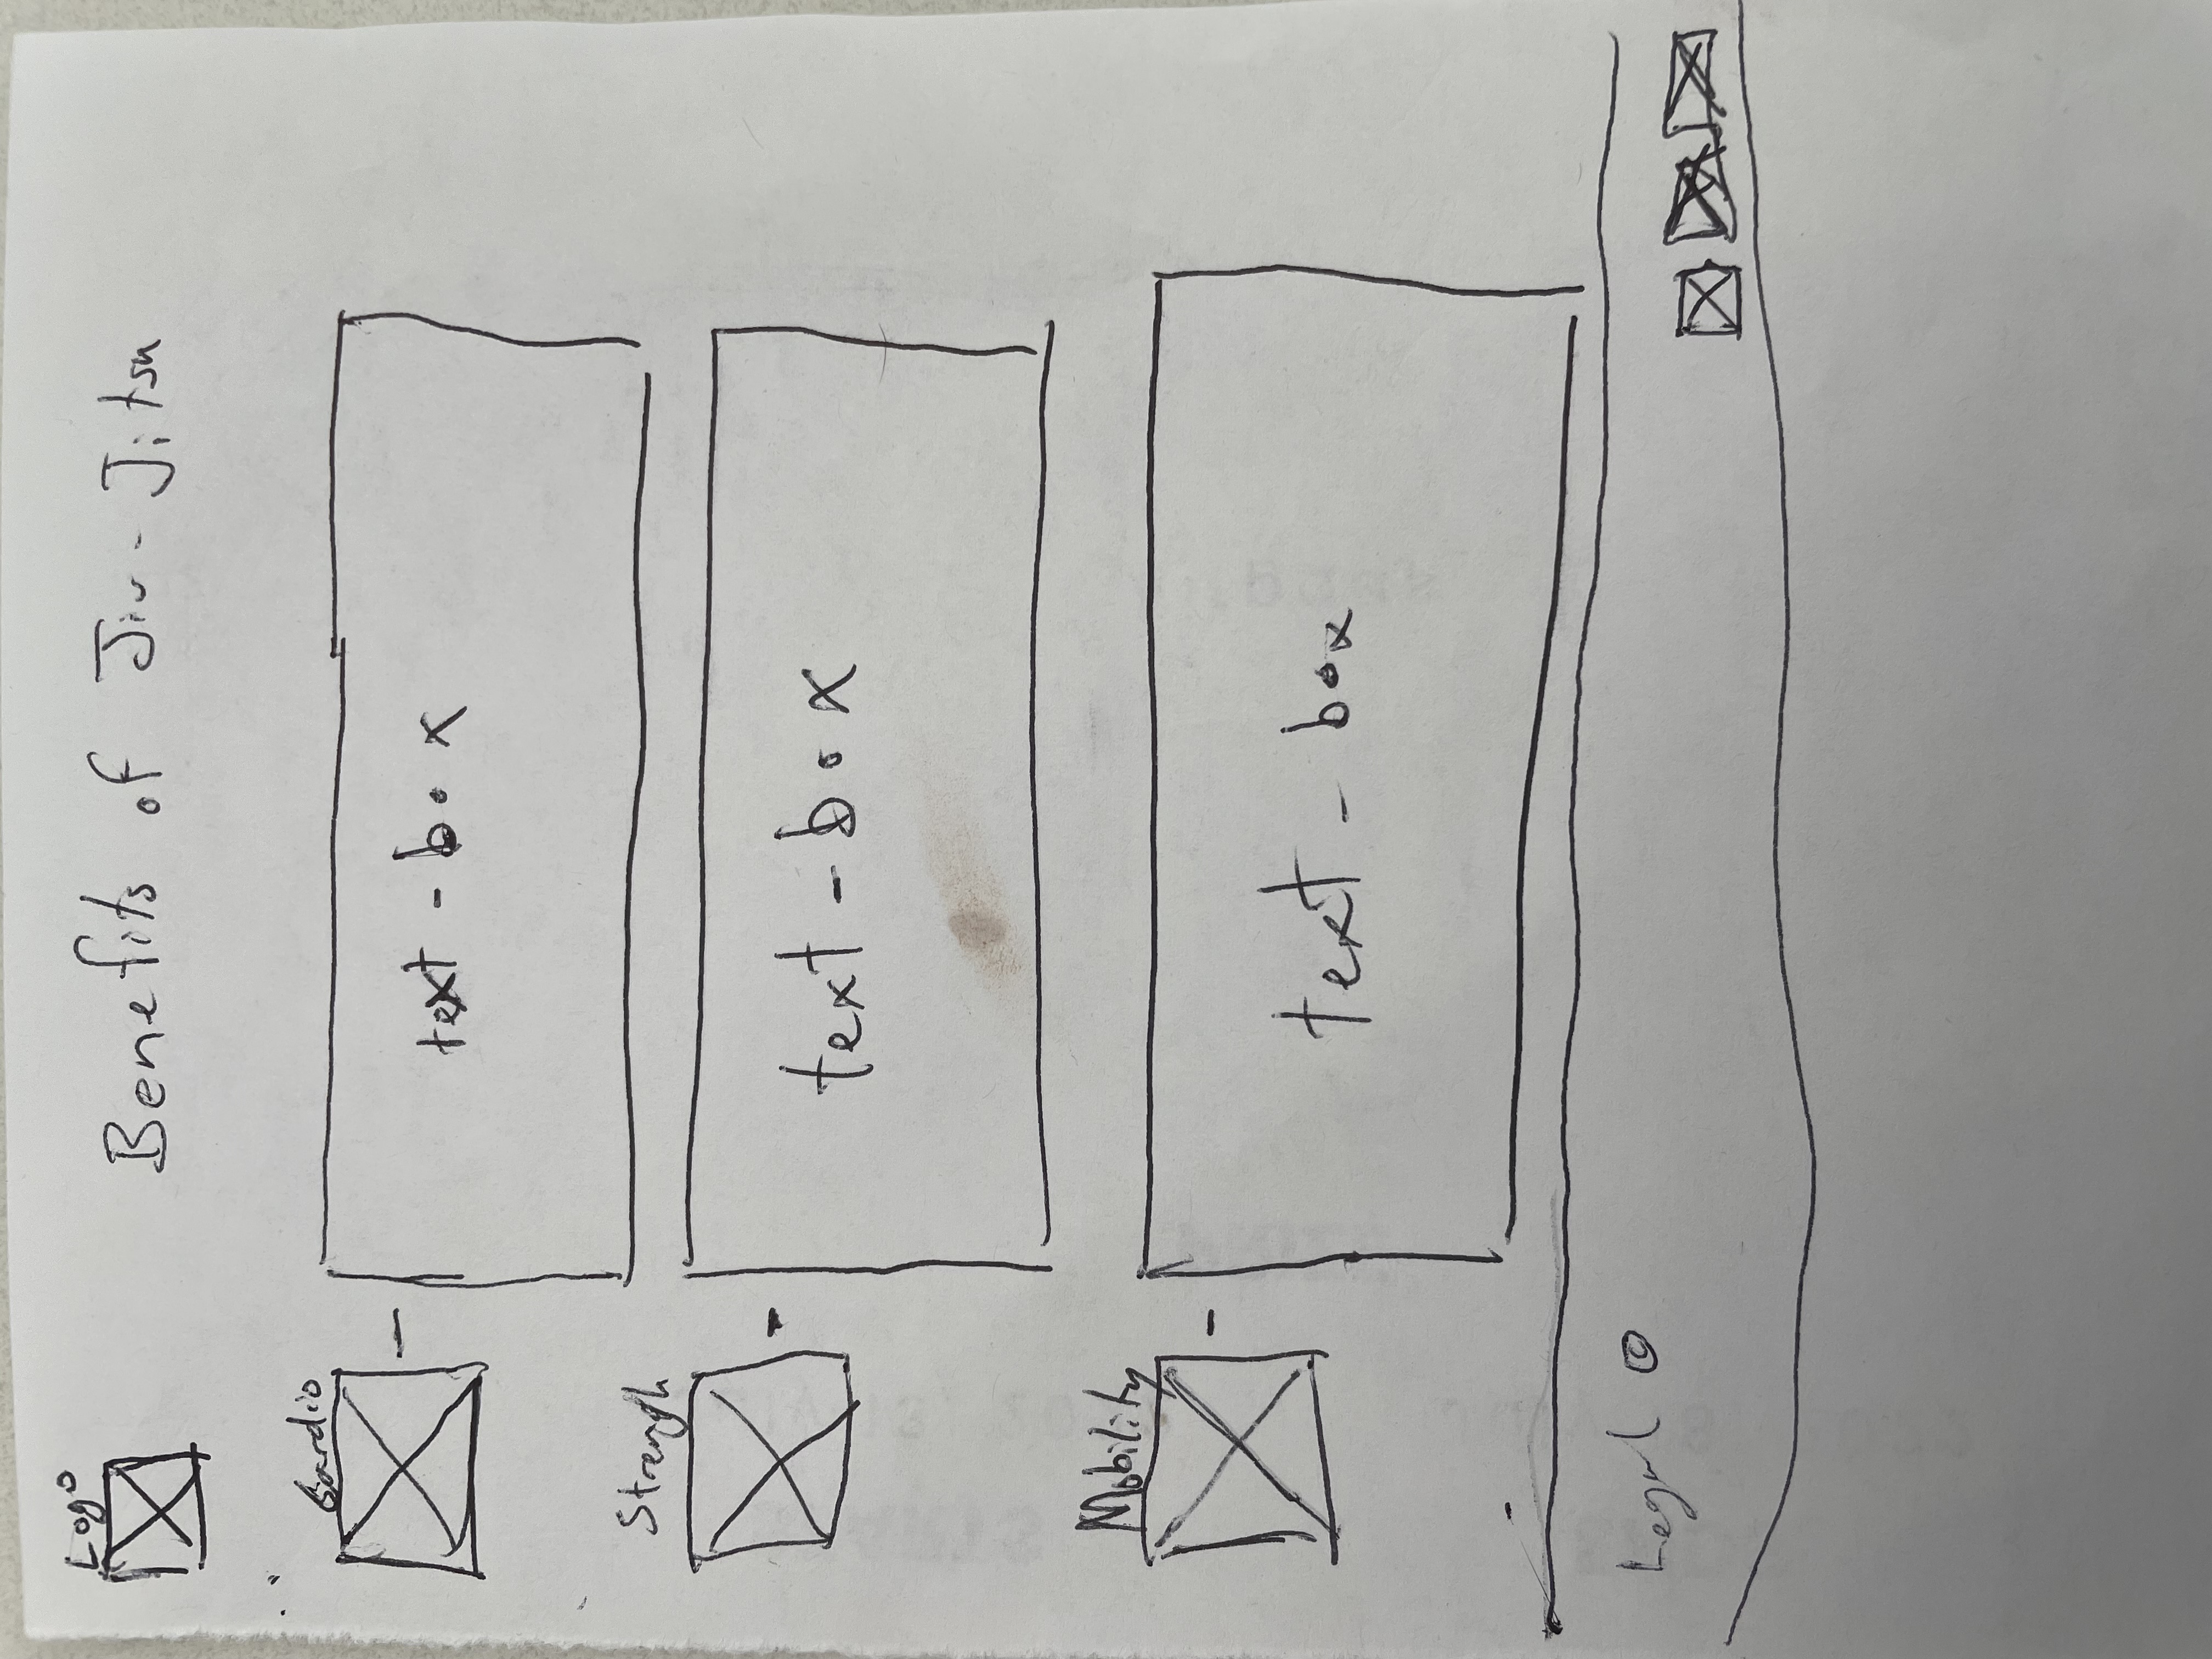 Logo
Benefits of Jiu-Jitsu
Cardio
text-box
Strengh
text-box
Mobility
text-box
Legal ©